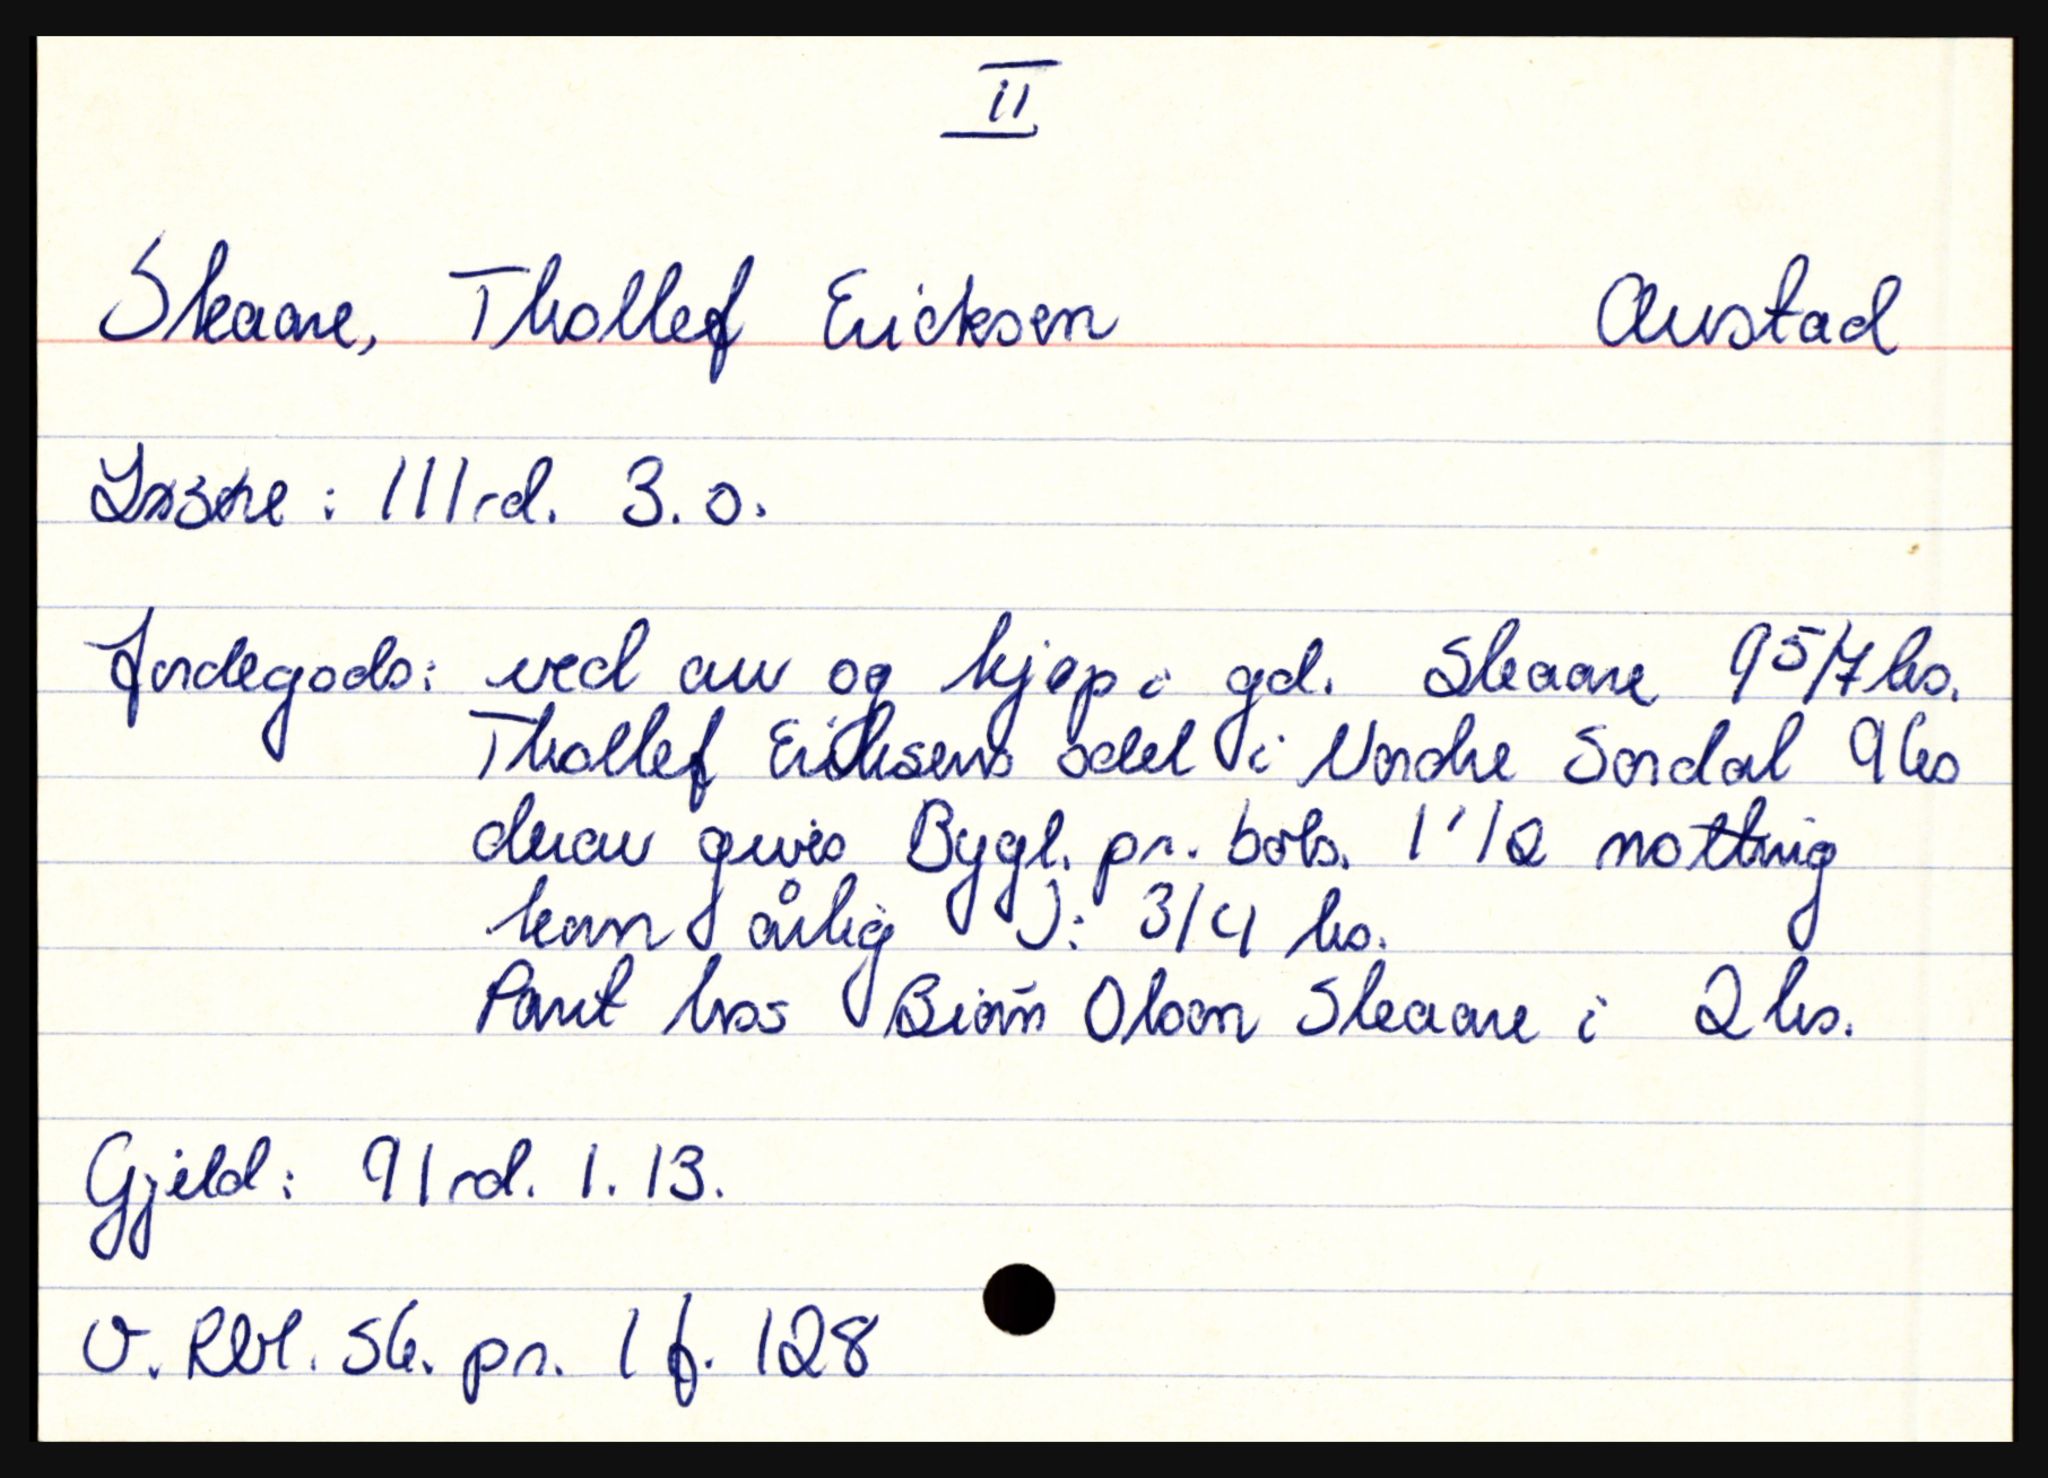 II
Skaare, Thollef Ericksen Austad
Løsøre: 111rd. 3. 0.
Jordegods: ved arv og kjøp i gd. Skaare 9 5/7 hs.
Thollef Eriksens odel i Nordre Sordal 9 hs
derav gives Bygl. pr. bols. 1 1/2 notting
korn årlig ɔ: 3/4 hs.
Pant hos Biörn Olson Skaare i 2 hs.
Gjeld: 91rd. 1. 13.
O. Rbl. Sk. pr. 1 f. 128